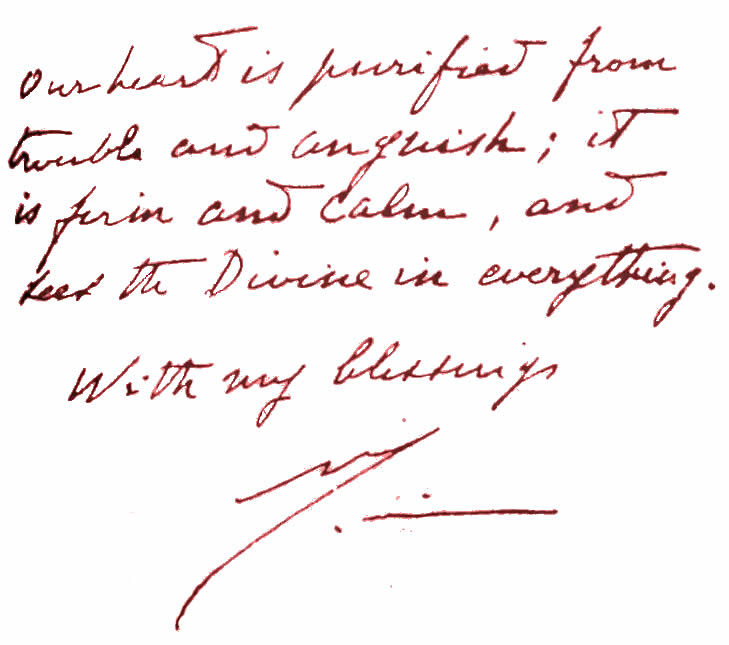 Our heart is purified from
trouble and anguish; it
is firm and calm, and
sees the Divine in everything.
With my blessings